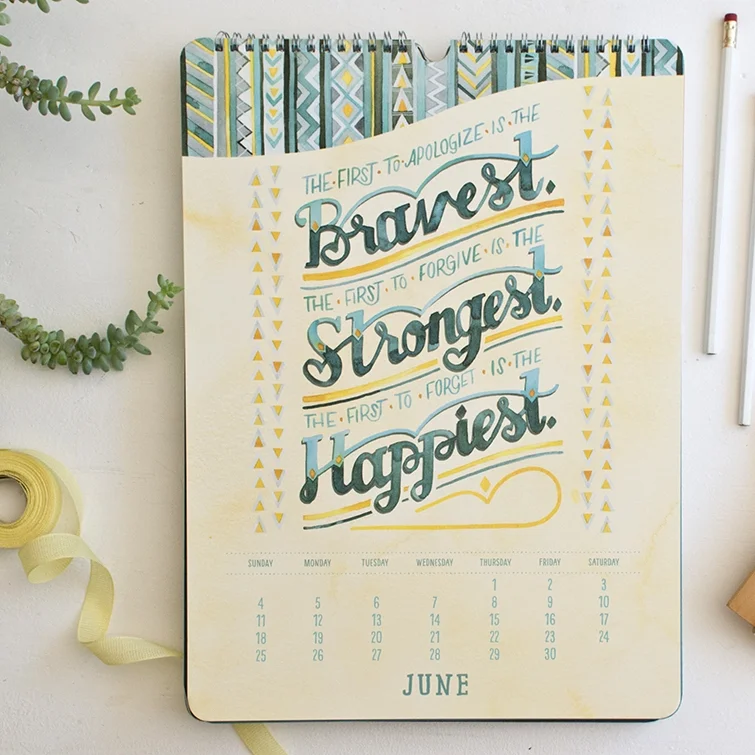 THE·FIRST·TO·APOLOGIZE·IS·THE
Bravest.
THE·FIRST·TO·FORGIVE·IS·THE
Strongest.
THE·FIRST·TO·FORGET·IS·THE
Happiest.
SUNDAY MONDAY TUESDAY WEDNESDAY THURSDAY FRIDAY SATURDAY
1 2 3
4 5 6 7 8 9 10
11 12 13 14 15 16 17
18 19 20 21 22 23 24
25 26 27 28 29 30
JUNE